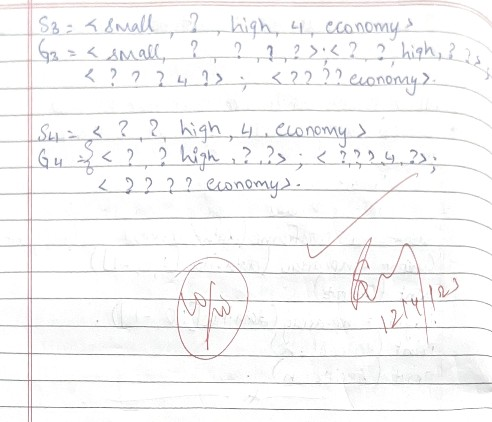 S3 = < small, ?, high, 4, economy>
G3 = < small, ?, ?, ?, ?>; < ?, ?, high, ? ?>;
< ? ? ? 4 ?> ; < ? ? ? ? economy>.
S4 = < ?, ?, high, 4, economy>
G4 = { < ?, ? high, ?, ?>; < ? ? ? 4, ?>;
< ? ? ? ? economy>.
10/10
12/4/23